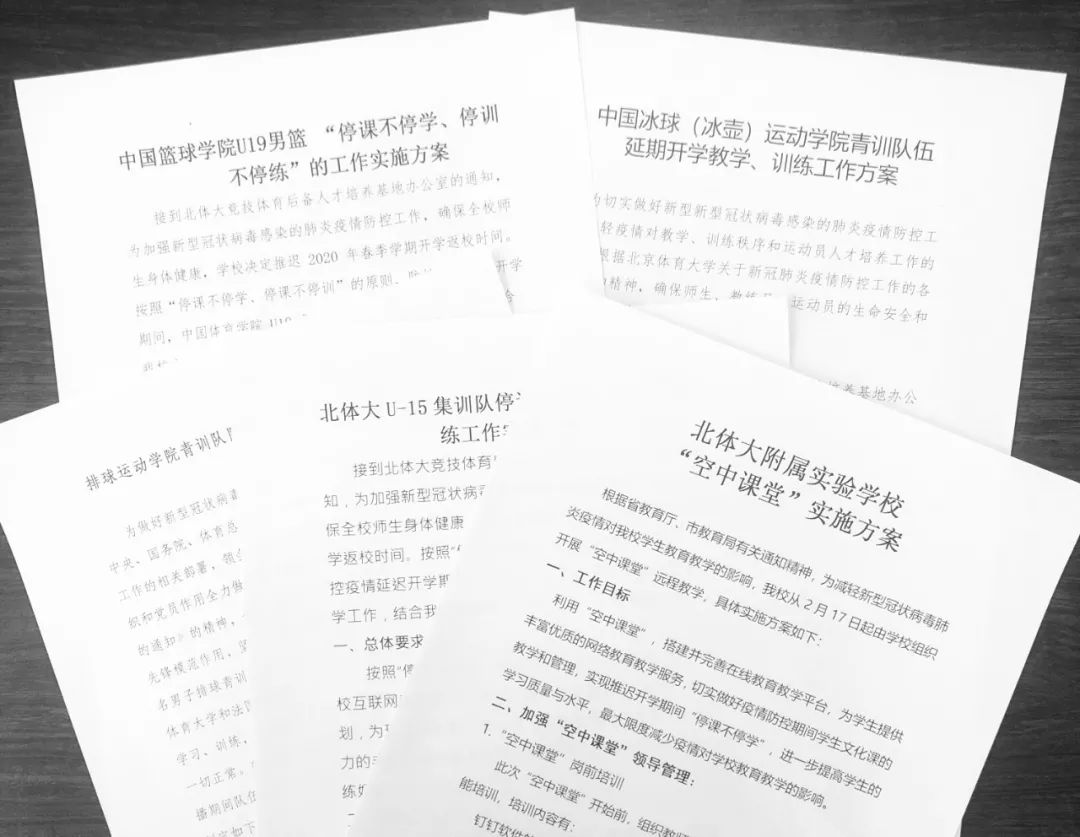 中国篮球学院U19男篮 “停课不停学、停训
不停练”的工作实施方案
接到北体大竞技体育后备人才培养基地办公室的通知，
为加强新型冠状病毒感染的肺炎疫情防控工作，确保全校师
生身体健康，学校决定推迟 2020 年春季学期开学返校时间。
按照“停课不停学、停课不停训”的原则
开学
期间，中国体育学院 U19
中国冰球（冰壶）运动学院青训队伍
延期开学教学、训练工作方案
为切实做好新型新型冠状病毒感染的肺炎疫情防控工
轻疫情对教学、训练秩序和运动员人才培养工作的
根据北京体育大学关于新冠肺炎疫情防控工作的各
精神，确保师生、教练员 运动员的生命安全和
培养基地办公
排球运动学院青训队
为做好新型冠状病毒
中央、国务院、体育总
工作的相关部署，领会
织和党员作用全力做
的通知》的精神，
先锋模范作用，坚
名男子排球青训
体育大学和法
学习、训练，
一切正常。
播期间队伍
北体大 U-15 集训队停
练工作
接到北体大竞技体育
知，为加强新型冠状病毒
保全校师生身体健康
学返校时间。按照“
控疫情延迟开学期
学工作，结合我
一、总体要求
按照“停
校互联网
划，为
力的
练
北体大附属实验学校
“空中课堂”实施方案
根据省教育厅、市教育局有关通知精神，为减轻新型冠状病毒肺
炎疫情对我校学生教育教学的影响，我校从 2 月 17 日起由学校组织
开展“空中课堂”远程教学，具体实施方案如下：
一、工作目标
利用“空中课堂”，搭建并完善在线教育教学平台，为学生提供
丰富优质的网络教育教学服务，切实做好疫情防控期间学生文化课的
教学和管理，实现推迟开学期间“停课不停学”，进一步提高学生的
学习质量与水平，最大限度减少疫情对学校教育教学的影响。
二、加强“空中课堂”领导管理：
1.“空中课堂”岗前培训
此次“空中课堂”开始前，组织教师
能培训，培训内容有：
钉钉软件